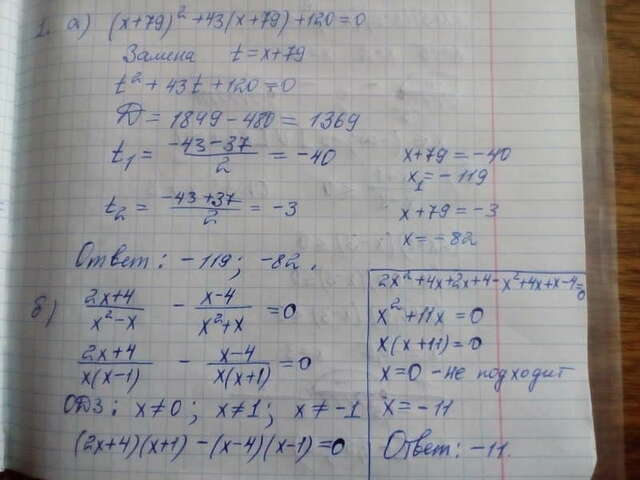 1. а) (x+79)² + 43(x+79) + 120 = 0
Замена t = x+79
t² + 43t + 120 = 0
Д = 1849 - 480 = 1369
t₁ = (-43-37)/2 = -40
x+79 = -40
x₁ = -119
t₂ = (-43+37)/2 = -3
x+79 = -3
x = -82
Ответ: -119; -82.
б) (2x+4)/(x²-x) - (x-4)/(x²+x) = 0
(2x+4)/(x(x-1)) - (x-4)/(x(x+1)) = 0
ОДЗ: x≠0; x≠1; x≠-1
(2x+4)(x+1) - (x-4)(x-1) = 0
2x²+4x+2x+4-x²+4x+x-4=0
x² + 11x = 0
x(x+11) = 0
x=0 - не подходит
x = -11
Ответ: -11.